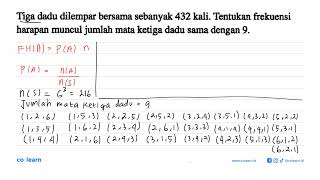 Tiga dadu dilempar bersama sebanyak 432 kali. Tentukan frekuensi
harapan muncul jumlah mata ketiga dadu sama dengan 9.
FH(A) = P(A) n
P(A) = n(A)
n(S)
n(S) = 6³ = 216
Jumlah mata ketiga dadu = 9
(1,2,6) (1,5,3) (2,2,5) (2,5,2) (3,2,4) (3,5,1) (4,3,2) (5,2,2)
(1,3,5) (1,6,2) (2,3,4) (2,6,1) (3,3,3) (4,1,4) (4,4,1) (5,3,1)
(1,4,4) (2,1,6) (2,4,3) (3,1,5) (3,4,2) (4,2,3) (5,1,3) (6,1,2)
(6,2,1)
co learn